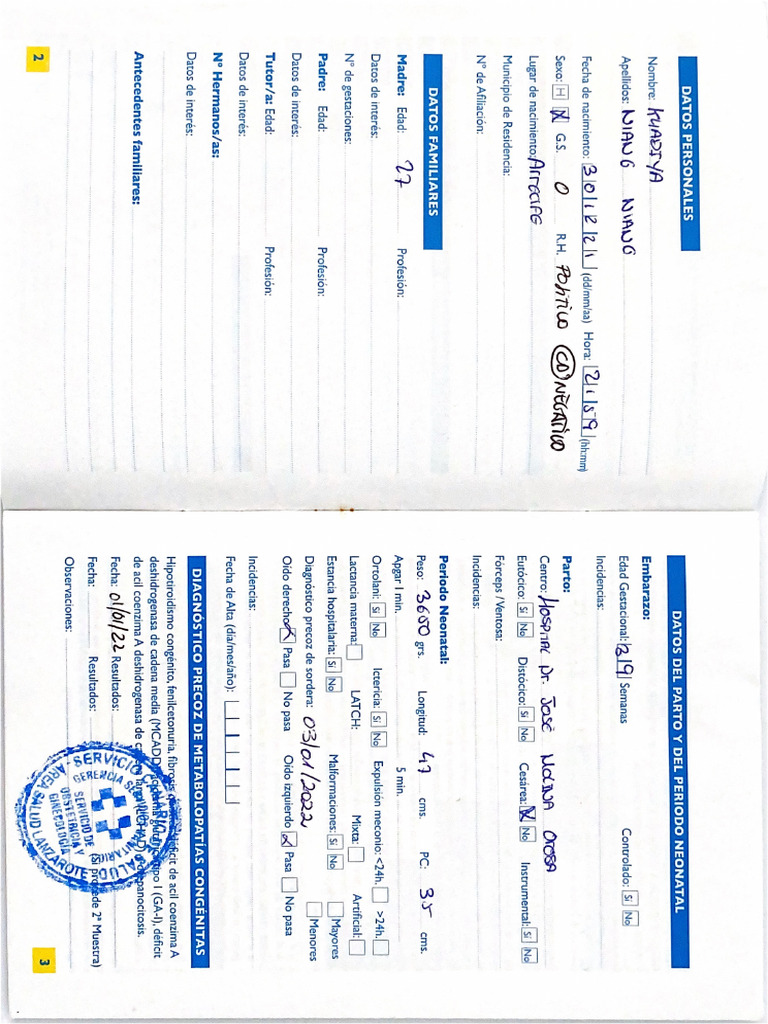 DATOS PERSONALES
Nombre: KHADIYA
Apellidos: NIANG NIANG
Fecha de nacimiento: 3|0|12|2|1 (dd/mm/aa) Hora: 2|1|5|9 (hh:mm)
Sexo: H X G.S. O R.H. POSITIVO CD NEGATIVO
Lugar de nacimiento: Arrecife
Municipio de Residencia:
Nº de Afiliación:
DATOS FAMILIARES
Madre: Edad: 27 Profesión:
Datos de interés:
Nº de gestaciones:
Padre: Edad: Profesión:
Datos de interés:
Tutor/a: Edad: Profesión:
Datos de interés:
Nº Hermanos/as:
Datos de interés:
Antecedentes familiares:
2
DATOS DEL PARTO Y DEL PERIODO NEONATAL
Embarazo:
Edad Gestacional: 39 Semanas Controlado: Sí No
Incidencias:
Parto:
Centro: Hospital Dr. José Molina Orosa
Eutócico: Sí No Distócico: Sí No Cesárea: X No Instrumental: Sí No
Fórceps /Ventosa:
Incidencias:
Periodo Neonatal:
Peso: 3600 grs. Longitud: 47 cms. PC: 35 cms.
Apgar 1 min. 5 min.
Ortolani: Sí No Ictericia: Sí No Expulsión meconio: <24h. >24h.
Lactancia materna: LATCH: Mixta: Artificial:
Estancia hospitalaria: Sí No Malformaciones: Sí No Mayores Menores
Diagnóstico precoz de sordera: 03/01/2022
Oído derecho X Pasa No pasa Oído izquierdo X Pasa No pasa
Incidencias:
Fecha de Alta (día/mes/año):
DIAGNÓSTICO PRECOZ DE METABOLOPATÍAS CONGÉNITAS
Hipotiroidismo congénito, fenilcetonuria, fibrosis déficit de acil coenzima A
deshidrogenasa de cadena media (MCADD), tipo I (GA-I), déficit
de acil coenzima A deshidrogenasa de
Fecha: 01/01/22 Resultados:
Fecha: Resultados: (Si procede 2ª Muestra)
Observaciones:
SERVICIO
SALUD
GERENCIA
SERVICIO DE
OBSTETRICIA Y
GINECOLOGÍA
ÁREA SALUD LANZAROTE
3